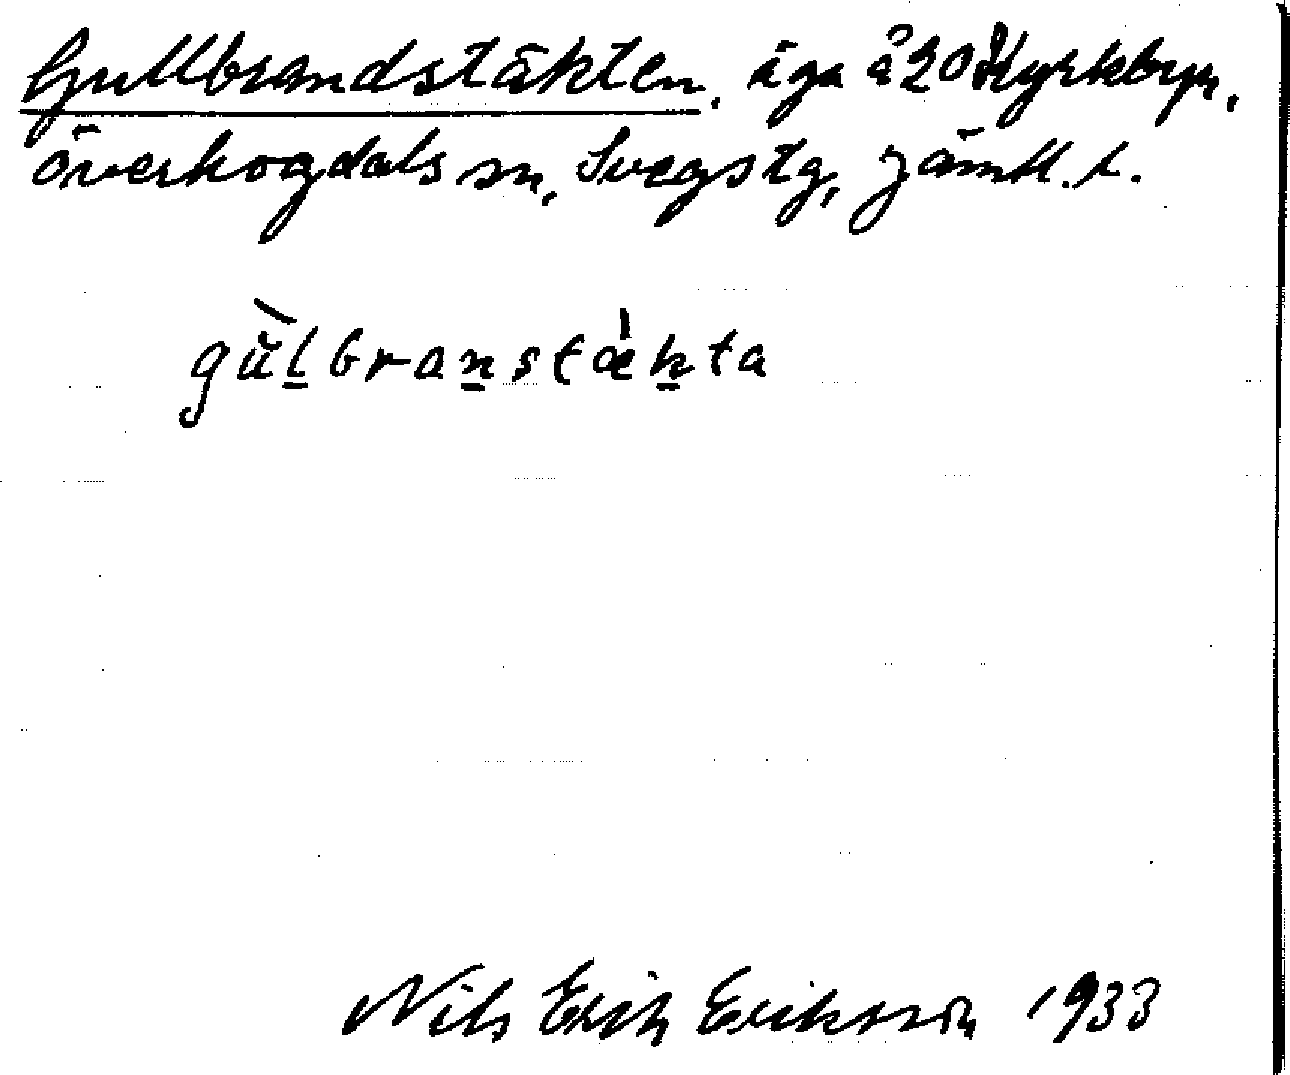 Gullbrandstäkten, äga å 20 Kyrkbyn,
Överhogdals sn, Svegs tg, Jämtl. l.
gùl̲bran̲stæ̀k̲ta
Nils Erik Eriksson 1933